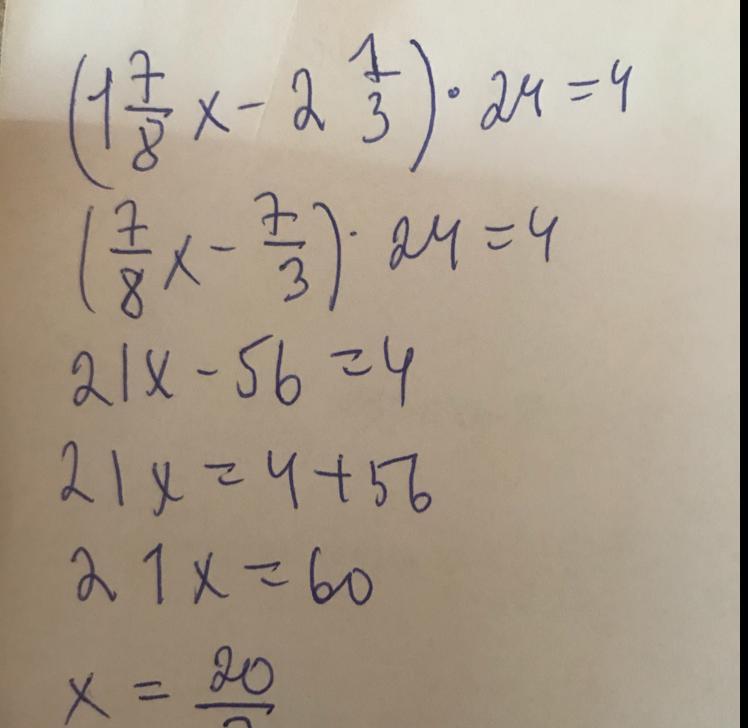 (1 7/8 x - 2 1/3) · 24 = 4
(7/8 x - 7/3) · 24 = 4
21x - 56 = 4
21x = 4 + 56
21x = 60
x = 20/